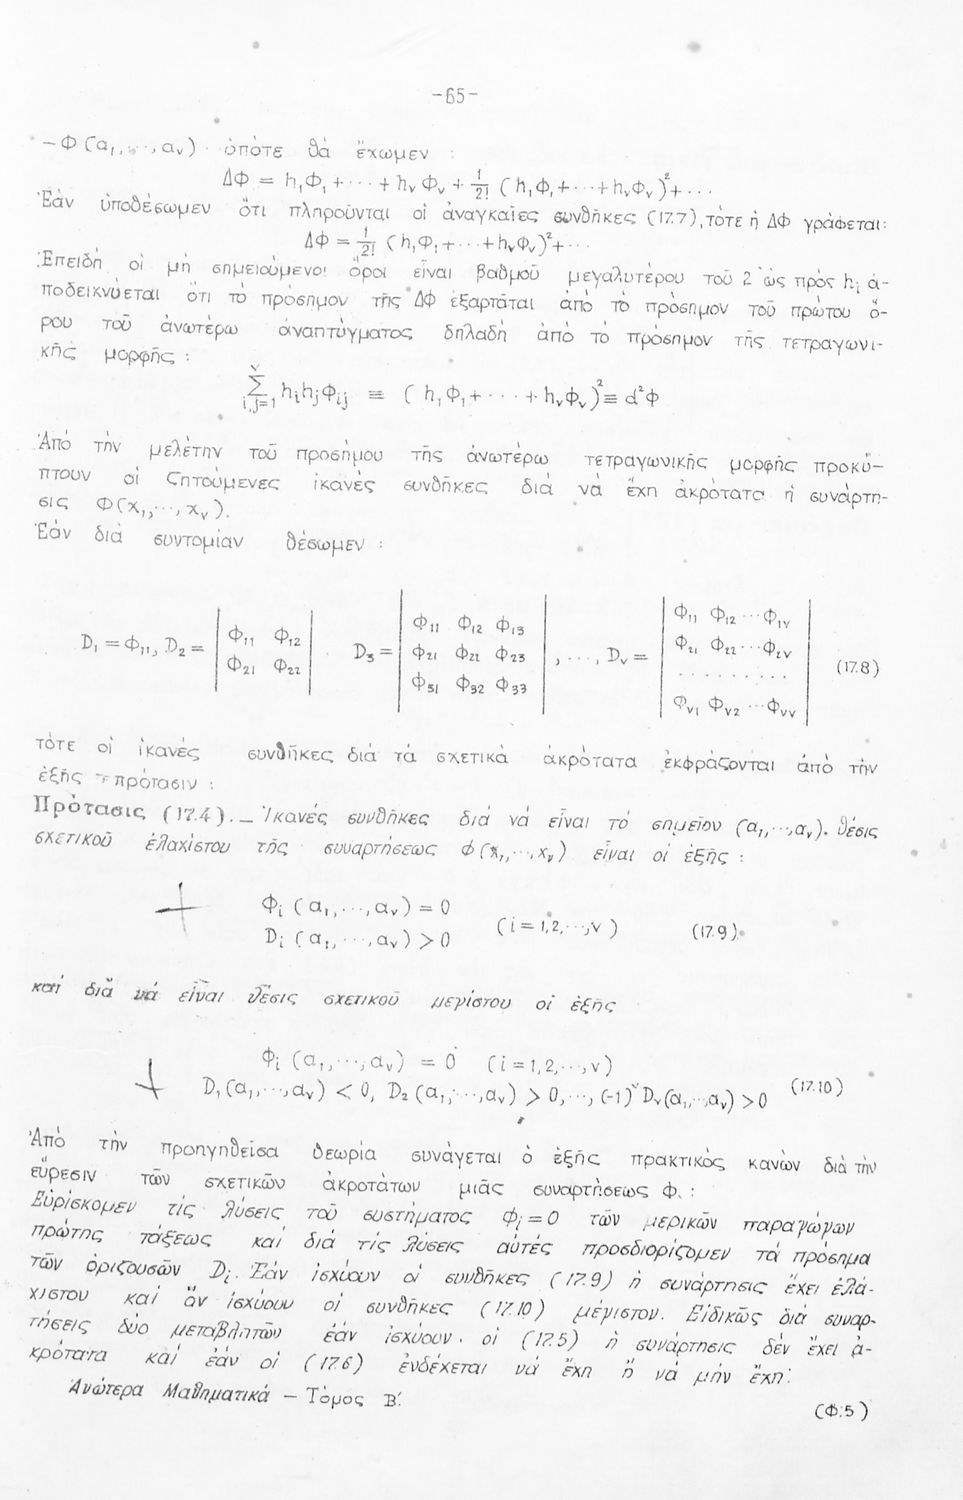 -65-
-Φ(α₁,…,αᵥ) ὁπότε θὰ ἔχωμεν :
ΔΦ = h₁Φ₁+···+hᵥΦᵥ+ 1/2! (h₁Φ₁+···+hᵥΦᵥ)²+···
Ἐὰν ὑποθέσωμεν ὅτι πληροῦνται οἱ ἀναγκαῖες συνθῆκες (17.7),τότε ἡ ΔΦ γράφεται:
ΔΦ = 1/2! (h₁Φ₁+···+hᵥΦᵥ)²+···
Ἐπειδὴ οἱ μὴ σημειούμενοι ὅροι εἶναι βαθμοῦ μεγαλυτέρου τοῦ 2 ὡς πρὸς hᵢ ἀ-
ποδεικνύεται ὅτι τὸ πρόσημον τῆς ΔΦ ἐξαρτᾶται ἀπὸ τὸ πρόσημον τοῦ πρώτου ὅ-
ρου τοῦ ἀνωτέρω ἀναπτύγματος δηλαδὴ ἀπὸ τὸ πρόσημον τῆς τετραγωνι-
κῆς μορφῆς :
ν∑i,j=1 hᵢhⱼΦᵢⱼ ≡ (h₁Φ₁+···+hᵥΦᵥ)² ≡ d²Φ
Ἀπὸ τὴν μελέτην τοῦ προσήμου τῆς ἀνωτέρω τετραγωνικῆς μορφῆς προκύ-
πτουν οἱ ζητούμενες ἱκανὲς συνθῆκες διὰ νὰ ἔχη ἀκρότατα ἡ συνάρτη-
σις Φ(x₁,…,xᵥ).
Ἐὰν διὰ συντομίαν θέσωμεν :
D₁=Φ₁₁, D₂= |Φ₁₁ Φ₁₂| D₃= |Φ₁₁ Φ₁₂ Φ₁₃| ,···, Dᵥ= |Φ₁₁ Φ₁₂ ··· Φ₁ᵥ| (17.8)
|Φ₂₁ Φ₂₂| |Φ₂₁ Φ₂₂ Φ₂₃| |Φ₂₁ Φ₂₂ ··· Φ₂ᵥ|
|Φ₃₁ Φ₃₂ Φ₃₃| |·········|
|Φᵥ₁ Φᵥ₂ ··· Φᵥᵥ|
τότε οἱ ἱκανὲς συνθῆκες διὰ τὰ σχετικὰ ἀκρότατα ἐκφράζονται ἀπὸ τὴν
ἐξῆς πρότασιν :
Πρότασις (17.4)._ Ἱκανὲς συνθῆκες διὰ νὰ εἶναι τὸ σημεῖον (α₁,…,αᵥ). θέσις
σχετικοῦ ἐλαχίστου τῆς συναρτήσεως Φ(x₁,…,xᵥ) εἶναι οἱ ἑξῆς :
Φᵢ (α₁,…,αᵥ) = 0
Dᵢ (α₁,…,αᵥ) > 0 (i = 1,2,…,ν) (17.9)
καὶ διὰ νὰ εἶναι θέσις σχετικοῦ μεγίστου οἱ ἑξῆς
Φᵢ (α₁,…,αᵥ) = 0 (i=1,2,…,ν)
D₁(α₁,…,αᵥ) < 0, D₂(α₁,…,αᵥ) > 0,…, (-1)ᵛDᵥ(α₁,…,αᵥ) > 0 (17.10)
Ἀπὸ τὴν προηγηθεῖσα θεωρία συνάγεται ὁ ἑξῆς πρακτικὸς κανὼν διὰ τὴν
εὕρεσιν τῶν σχετικῶν ἀκροτάτων μιᾶς συναρτήσεως Φ. :
Εὑρίσκομεν τὶς λύσεις τοῦ συστήματος Φᵢ=0 τῶν μερικῶν παραγώγων
πρώτης τάξεως καὶ διὰ τὶς λύσεις αὐτὲς προσδιορίζομεν τὰ πρόσημα
τῶν ὁριζουσῶν Dᵢ. Ἐὰν ἰσχύουν οἱ συνθῆκες (17.9) ἡ συνάρτησις ἔχει ἐλά-
χιστον καὶ ἂν ἰσχύουν οἱ συνθῆκες (17.10) μέγιστον. Εἰδικῶς διὰ συναρ-
τήσεις δύο μεταβλητῶν ἐὰν ἰσχύουν. οἱ (17.5) ἡ συνάρτησις δὲν ἔχει ἀ-
κρότατα καὶ ἐὰν οἱ (17.6) ἐνδέχεται νὰ ἔχη ἢ νὰ μὴν ἔχη.
Ἀνώτερα Μαθηματικά – Τόμος Β΄.
(Φ.5)